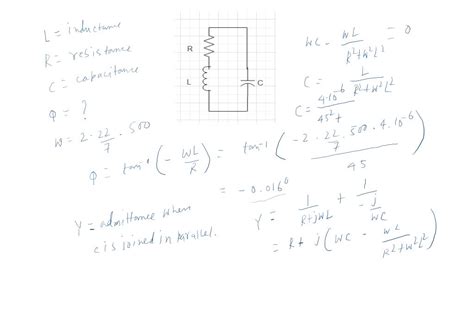 L = inductance
R = resistance
C = capacitance
φ = ?
W = 2 · 22/7 · 500
R
L
C
WC - WL/(R²+W²L²) = 0
C = L/(R²+W²L²)
C = 4·10⁻⁶/
φ = tan⁻¹(-WL/R) = tan⁻¹(-2·22/7·500·4·10⁻⁶/45)
= -0.016⁰
Y = admittance when
C is joined in parallel.
Y = 1/(R+jWL) + 1/(-j/WC)
= R + j(WC - WL/(R²+W²L²))